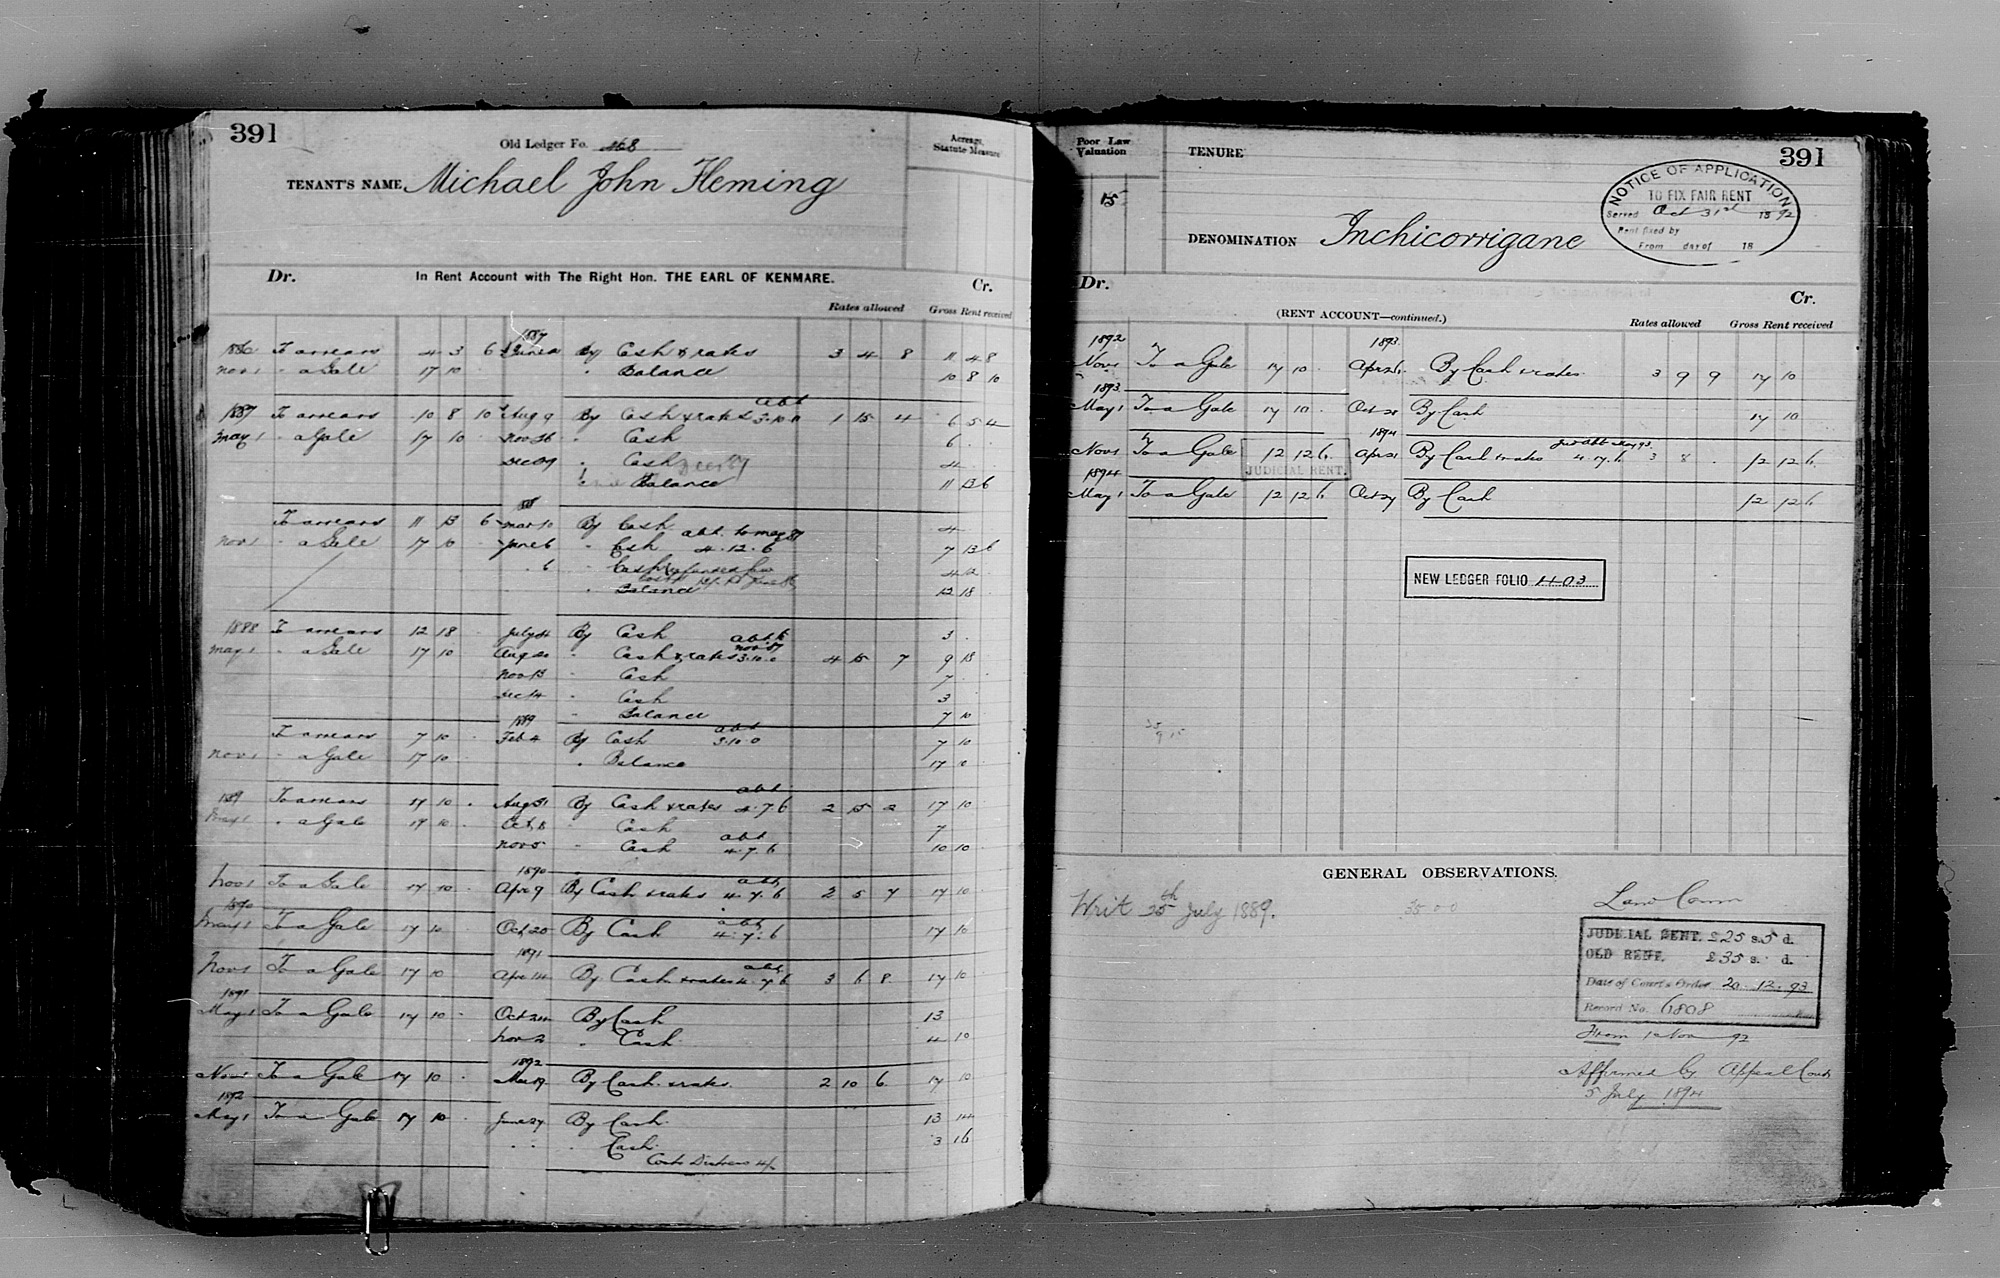 391
Old Ledger Fo. 468
Acreage, Statute Measure
TENANT'S NAME Michael John Fleming
Dr. In Rent Account with The Right Hon. THE EARL OF KENMARE. Cr.
Rates allowed Gross Rent received
1887
1886 To arrears 4 3 6 June By Cash & rates 3 4 8 11 4 8
Nov 1 " a Gale 17 10 " Balance 10 8 10
abt
1887 To arrears 10 8 10 Aug 9 By Cash & rates 3.10.0 1 15 4 6 5 4
May 1 " a Gale 17 10 Nov 26 " Cash 6
Dec 29 " Cash 4
Balance 11 13 6
88
To arrears 11 13 6 Mar 10 By Cash 4
Nov 1 " a Gale 17 10 June 6 " Cash abt. to May 87 4.12.6 7 13 6
" 6 " Cash 4 12
" Balance 12 18
1888 To arrears 12 18 July 24 By Cash 3
May 1 " a Gale 17 10 Aug 20 " Cash & rates abt to Nov 87 3.10.0 4 15 7 9 18
Nov 13 " Cash 7
Dec 14 " Cash 3
" Balance 7 10
1889
To arrears 7 10 Feb 4 By Cash abt 3.10.0 7 10
Nov 1 " a Gale 17 10 " Balance 17 10
1889 To arrears 17 10 Aug 31 By Cash & rates abt 4.7.6 2 15 2 17 10
May 1 " a Gale 17 10 Oct 8 " Cash 7
Nov 5 " Cash abt 4.7.6 10 10
1890
Nov 1 To a Gale 17 10 Apr 9 By Cash & rates abt 4.7.6 2 5 7 17 10
1890
May 1 To a Gale 17 10 Oct 20 By Cash abt 4.7.6 17 10
1891
Nov 1 To a Gale 17 10 Apr 14 By Cash & rates abt 4.7.6 3 6 8 17 10
1891
May 1 To a Gale 17 10 Oct 24 By Cash 13
Nov 2 " Cash 4 10
1892
Nov 1 To a Gale 17 10 Mar 19 By Cash & rates 2 10 6 17 10
1892
May 1 To a Gale 17 10 June 27 By Cash 13 14
" Cash 3 16
Costs Distress 4/-
Poor Law Valuation
TENURE
391
15
NOTICE OF APPLICATION
TO FIX FAIR RENT
Served Oct 31st 1892
Rent fixed by
From day of 18
DENOMINATION Inchicorrigane
Dr. Cr.
(RENT ACCOUNT—continued.)
Rates allowed Gross Rent received
1892 1893
Nov 1 To a Gale 17 10 Apr 26 By Cash & rates 3 9 9 17 10
1893
May 1 To a Gale 17 10 Oct 28 By Cash 17 10
1894
Nov 1 To a Gale 12 12 6 Apr 21 By Cash & rates Jud abt May 93 4.17.6 3 8 12 12 6
JUDICIAL RENT.
1894
May 1 To a Gale 12 12 6 Oct 27 By Cash 12 12 6
NEW LEDGER FOLIO 1403
GENERAL OBSERVATIONS.
Writ 25th July 1889. 35 0 0
Land Comm
JUDICIAL RENT. £25 s.5 d.
OLD RENT. £35 s. d.
Date of Court's Order 20.12.93
Record No. 6808
From 1 Nov 92
Affirmed by Appeal Court
5 July 1894